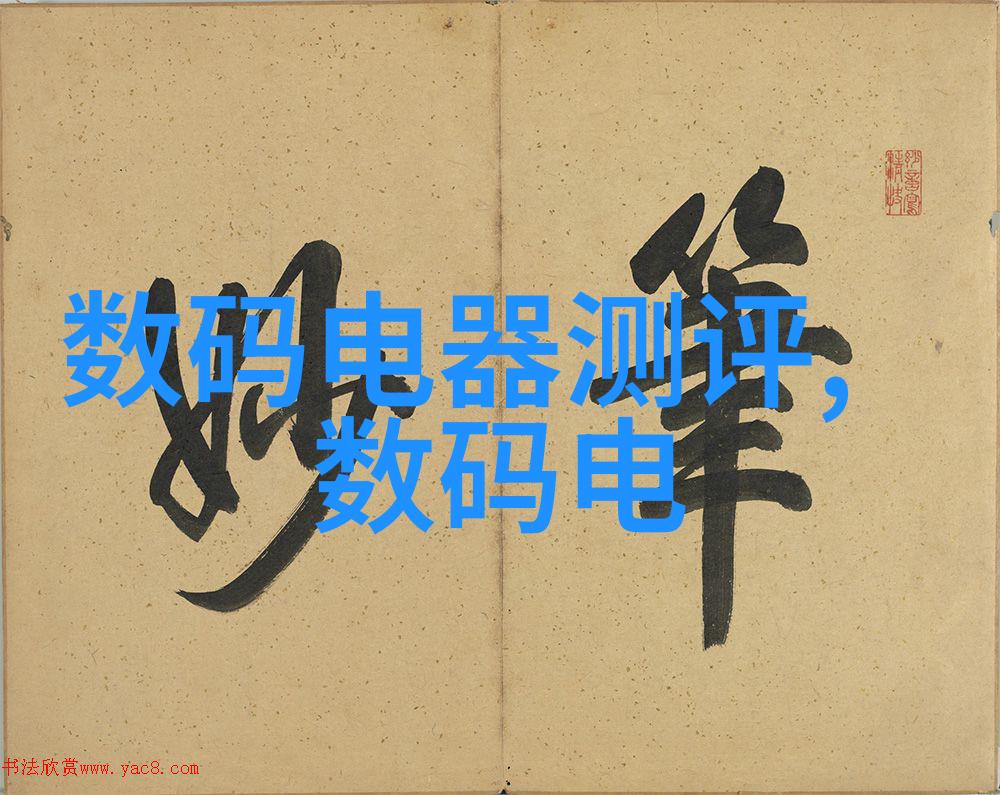 筆
妙
数码电器测评,
数码电
书法欣赏www.yac8.com